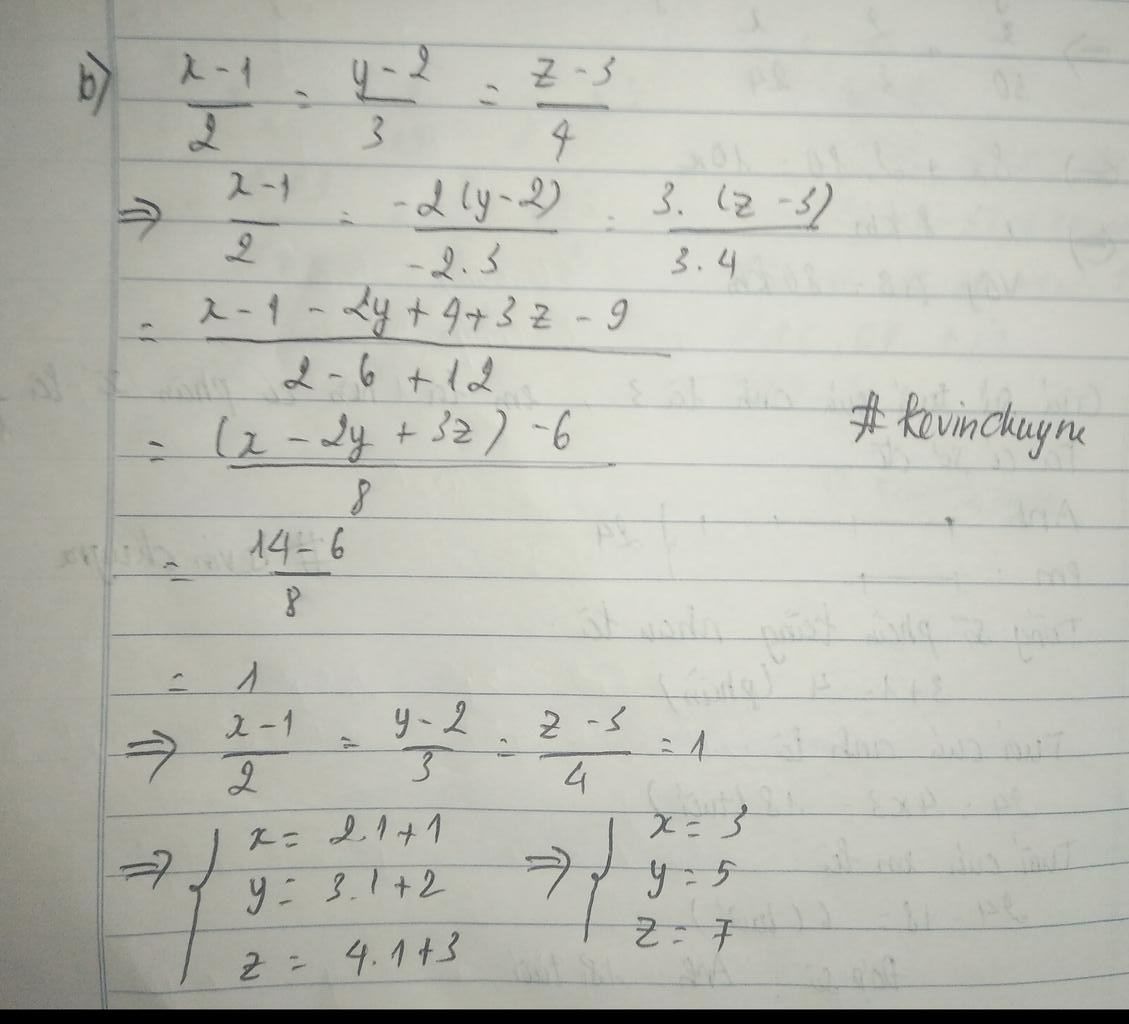 b) (x-1)/2 = (y-2)/3 = (z-3)/4
⇒ (x-1)/2 = (-2(y-2))/(-2.3) = (3.(z-3))/(3.4)
= (x-1-2y+4+3z-9)/(2-6+12)
= ((x-2y+3z)-6)/8
# kevinchuyne
= (14-6)/8
= 1
⇒ (x-1)/2 = (y-2)/3 = (z-3)/4 = 1
⇒ { x = 2.1+1 ⇒ { x = 3
y = 3.1+2 y = 5
z = 4.1+3 z = 7